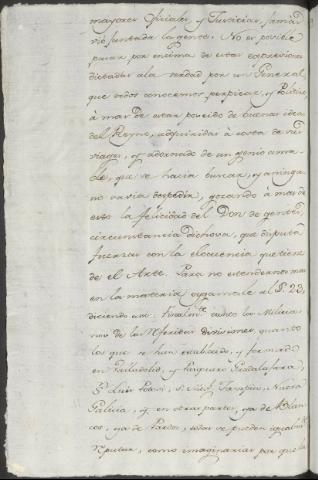 mayores oficiales, y Justicias, jamas
vió juntada la gente. No es posible
pasar por encima de estas expresiones
dictadas a la verdad por un General,
que todos conocemos perspicaz, y Politico
á mas de estar poseido de buenas ideas
del Reyno, adquiridas á costa de sus
viages, y adornado de un genio ama-
ble, que se hacia buscar, y aninga
no savia despedir, gozando á mas de
esto la felicidad del Don de gentes,
circunstancia dichosa, que disputa
fuerzas con la elocuencia que tiene
de el Arte. Para no estendernos mas
en la materia oygamosle al P. 23,
diciendo assi. Finalm.te todas la Milicia
nos de las Ynferiores divisiones, quanto
los que se han establecido, y formado
en Valladolid, y Pasquaro Guadalaxara,
S. Luis Potosi, Nueva
Galicia, y en otras partes, ya de Blan
cos, ya de Pardos, todas se pueden igualm.te
reputar, como imaginarias por que la